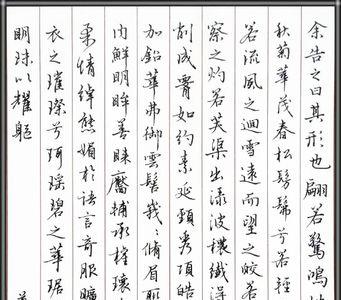 余告之曰其形也翩若驚鴻
秋菊華茂春松髣髴兮若輕
若流風之迴雪遠而望之皎若
察之灼若芙渠出淥波穠纖得
削成腰如約素延頸秀項皓
加鉛華弗御雲髻峩々脩眉
內鮮明眸善睞靨輔承權瓌
柔情綽態媚於語言奇服曠
衣之璀璨兮珥瑤碧之華琚
明珠以耀軀